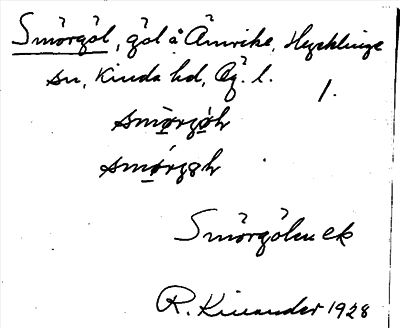 Smörgöl, göl å Ämrike, Hycklinge
sn, Kinda hd, Ög. l.
1.
smörgöḷ
smörgəḷ
Smörgölu ek
R. Kinander 1928